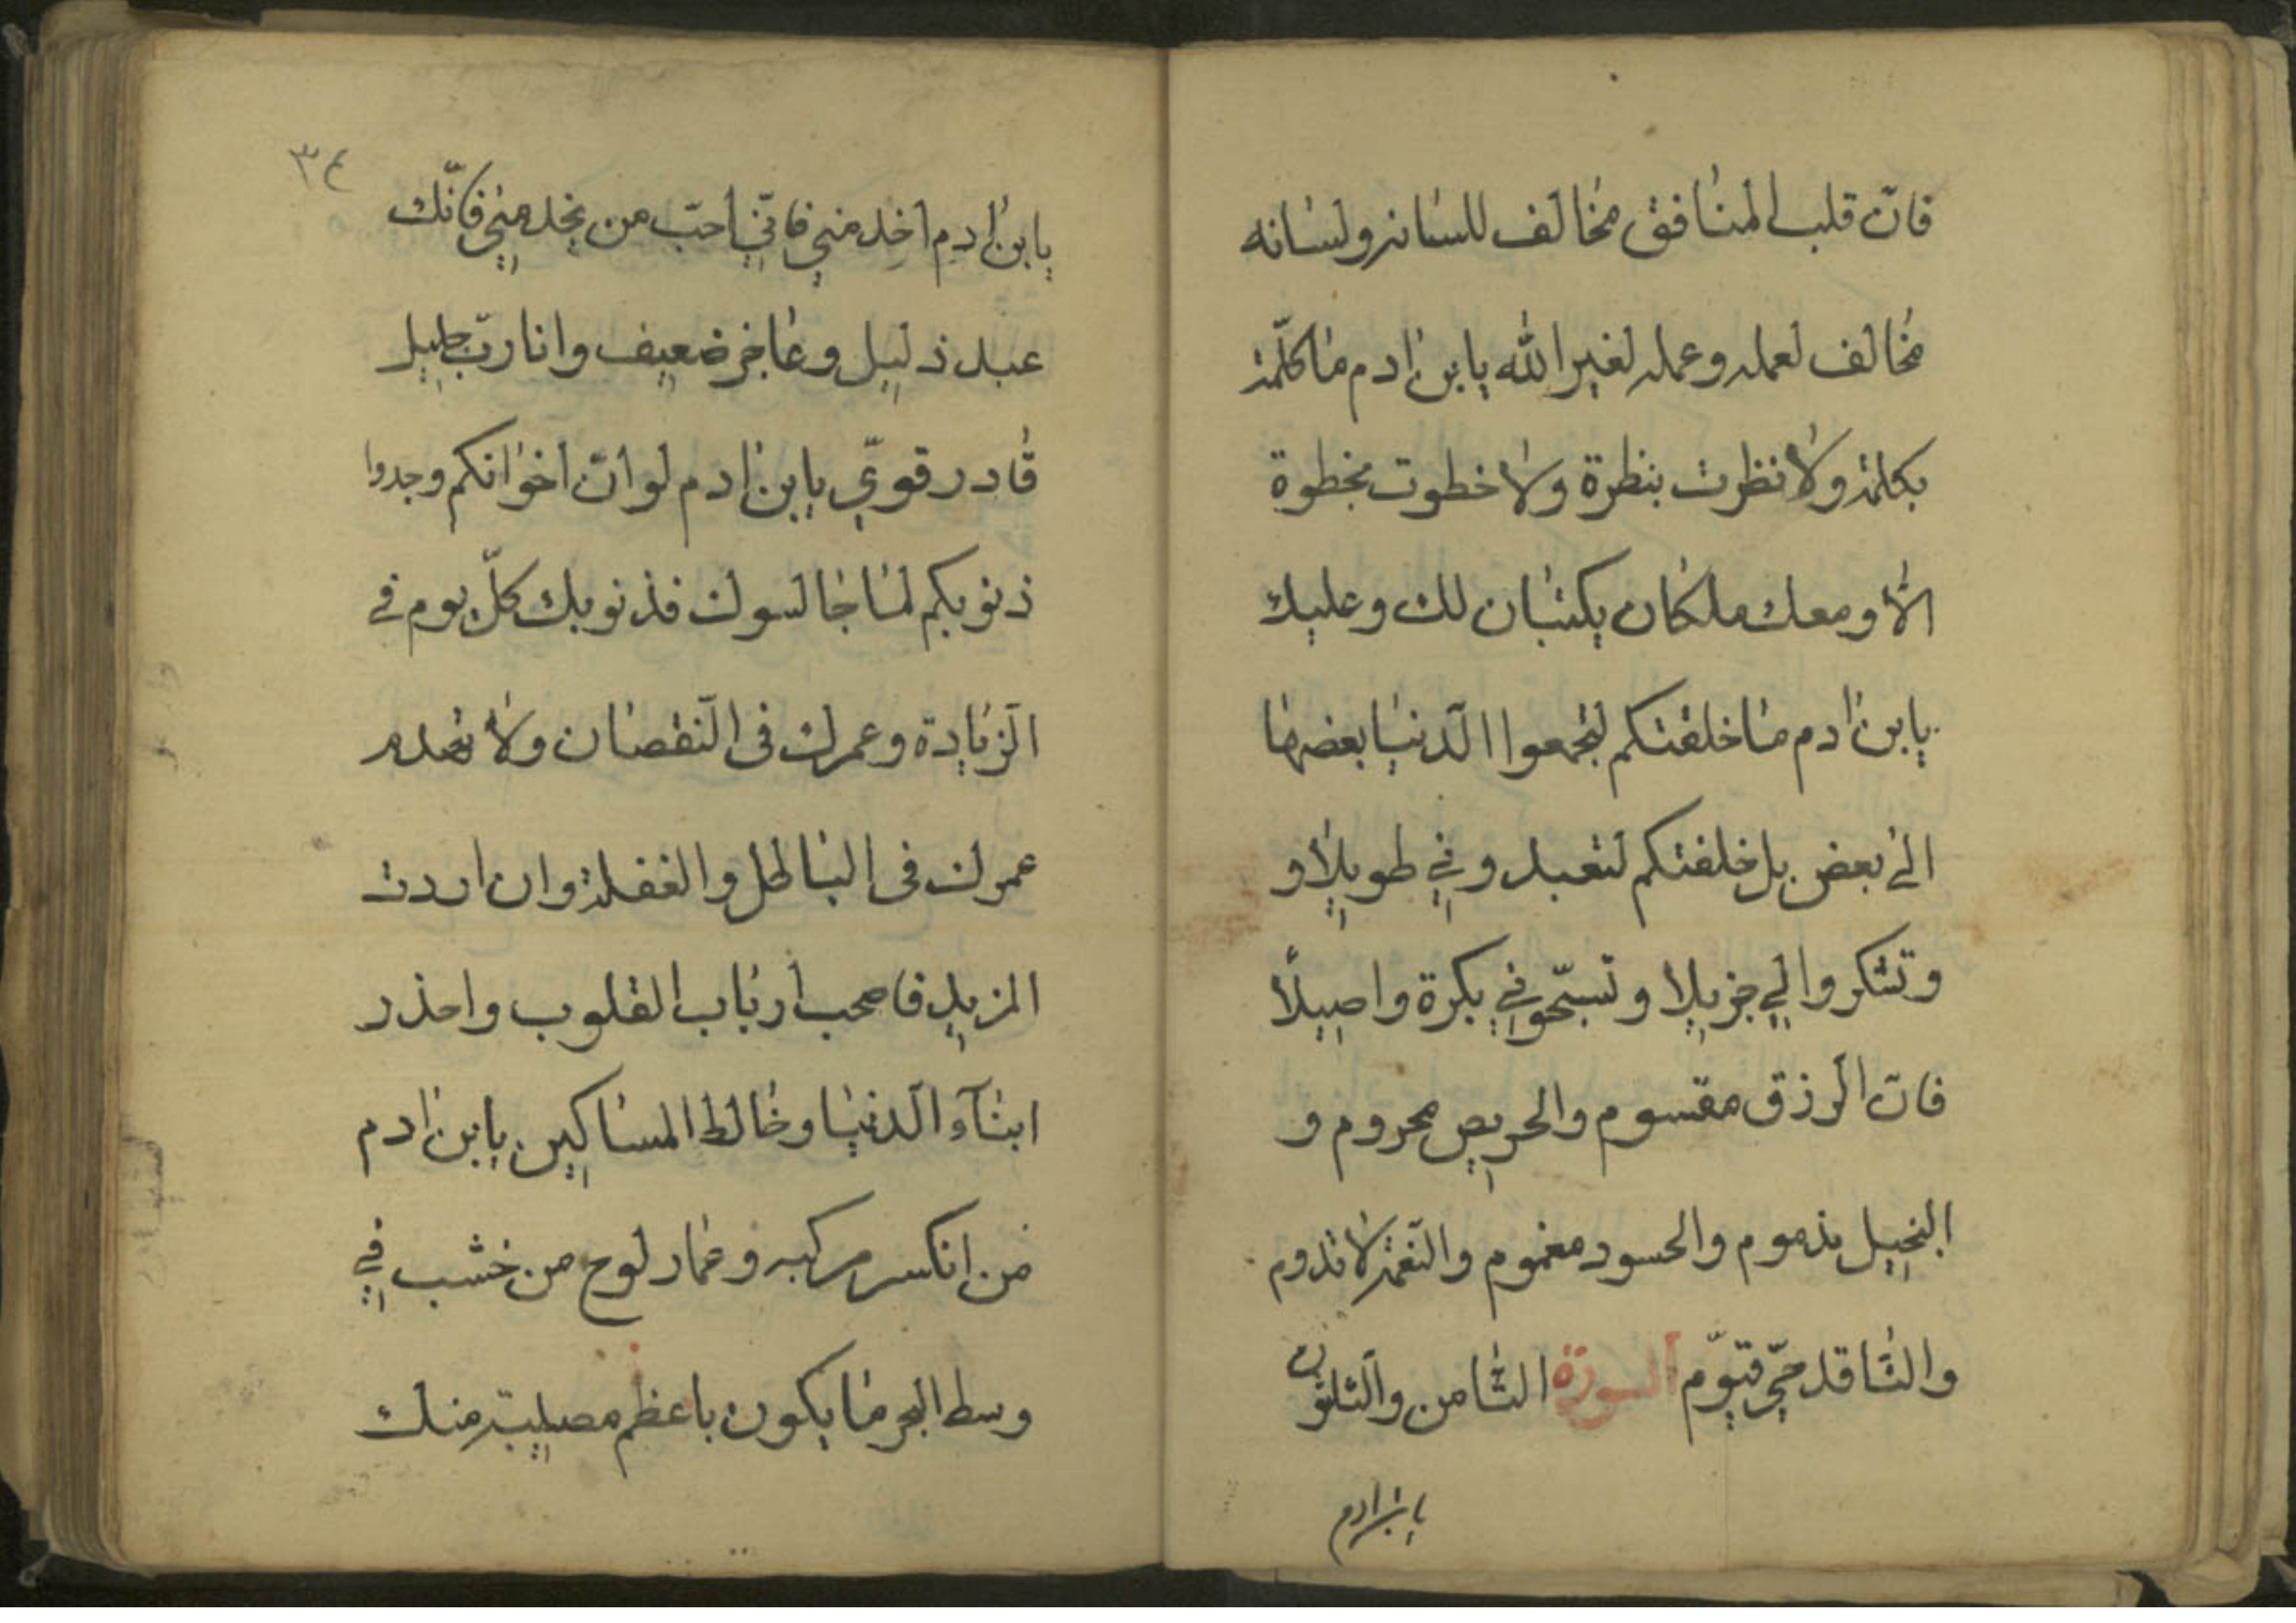 فانّ قلب المنافق مخالف للسانه ولسانه
مخالف لعمله وعمله لغير الله يابن ادم ما كلّمت
بكلمة ولا نظرت بنظرة ولا خطوت بخطوة
الا ومعك ملكان يكتبان لك وعليك
يابن ادم ما خلقتكم لتجمعوا الدّنيا بعضها
الى بعض بل خلقتكم لتعبدوني طويلا و
وتشكروا لي جزيلا وتسبّحوني بكرة واصيلاً
فانّ الرّزق مقسوم والحريص محروم و
البخيل مذموم والحسود مغموم والنّعمة لا تدوم
والنّاقد حيّ قيّوم السورة الثّامن والثلثون
يابن ادم
٣٤
يابن ادم اخدمني فانّي احبّ من يخدمني فانّك
عبد ذليل وعاجز ضعيف وانا ربّ جليل
قادر قويّ يابن ادم لو انّ اخوانكم وجدوا
ذنوبكم لما جالسوك فذنوبك كلّ يوم في
الزّيادة وعمرك فى النّقصان ولا
عمرك فى الباطل والغفلة وان اردت
المزيد فاصحب ارباب القلوب واحذر
ابنآء الدّنيا وخالط المساكين يابن ادم
من انكسر مركبه وعمار لوح من خشب في
وسط البحر ما يكون باعظم مصيبة منك